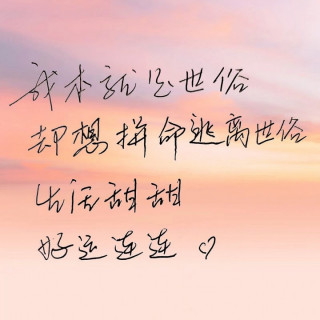 我本就是世俗
却想拼命逃离世俗
生活甜甜
好运连连♡